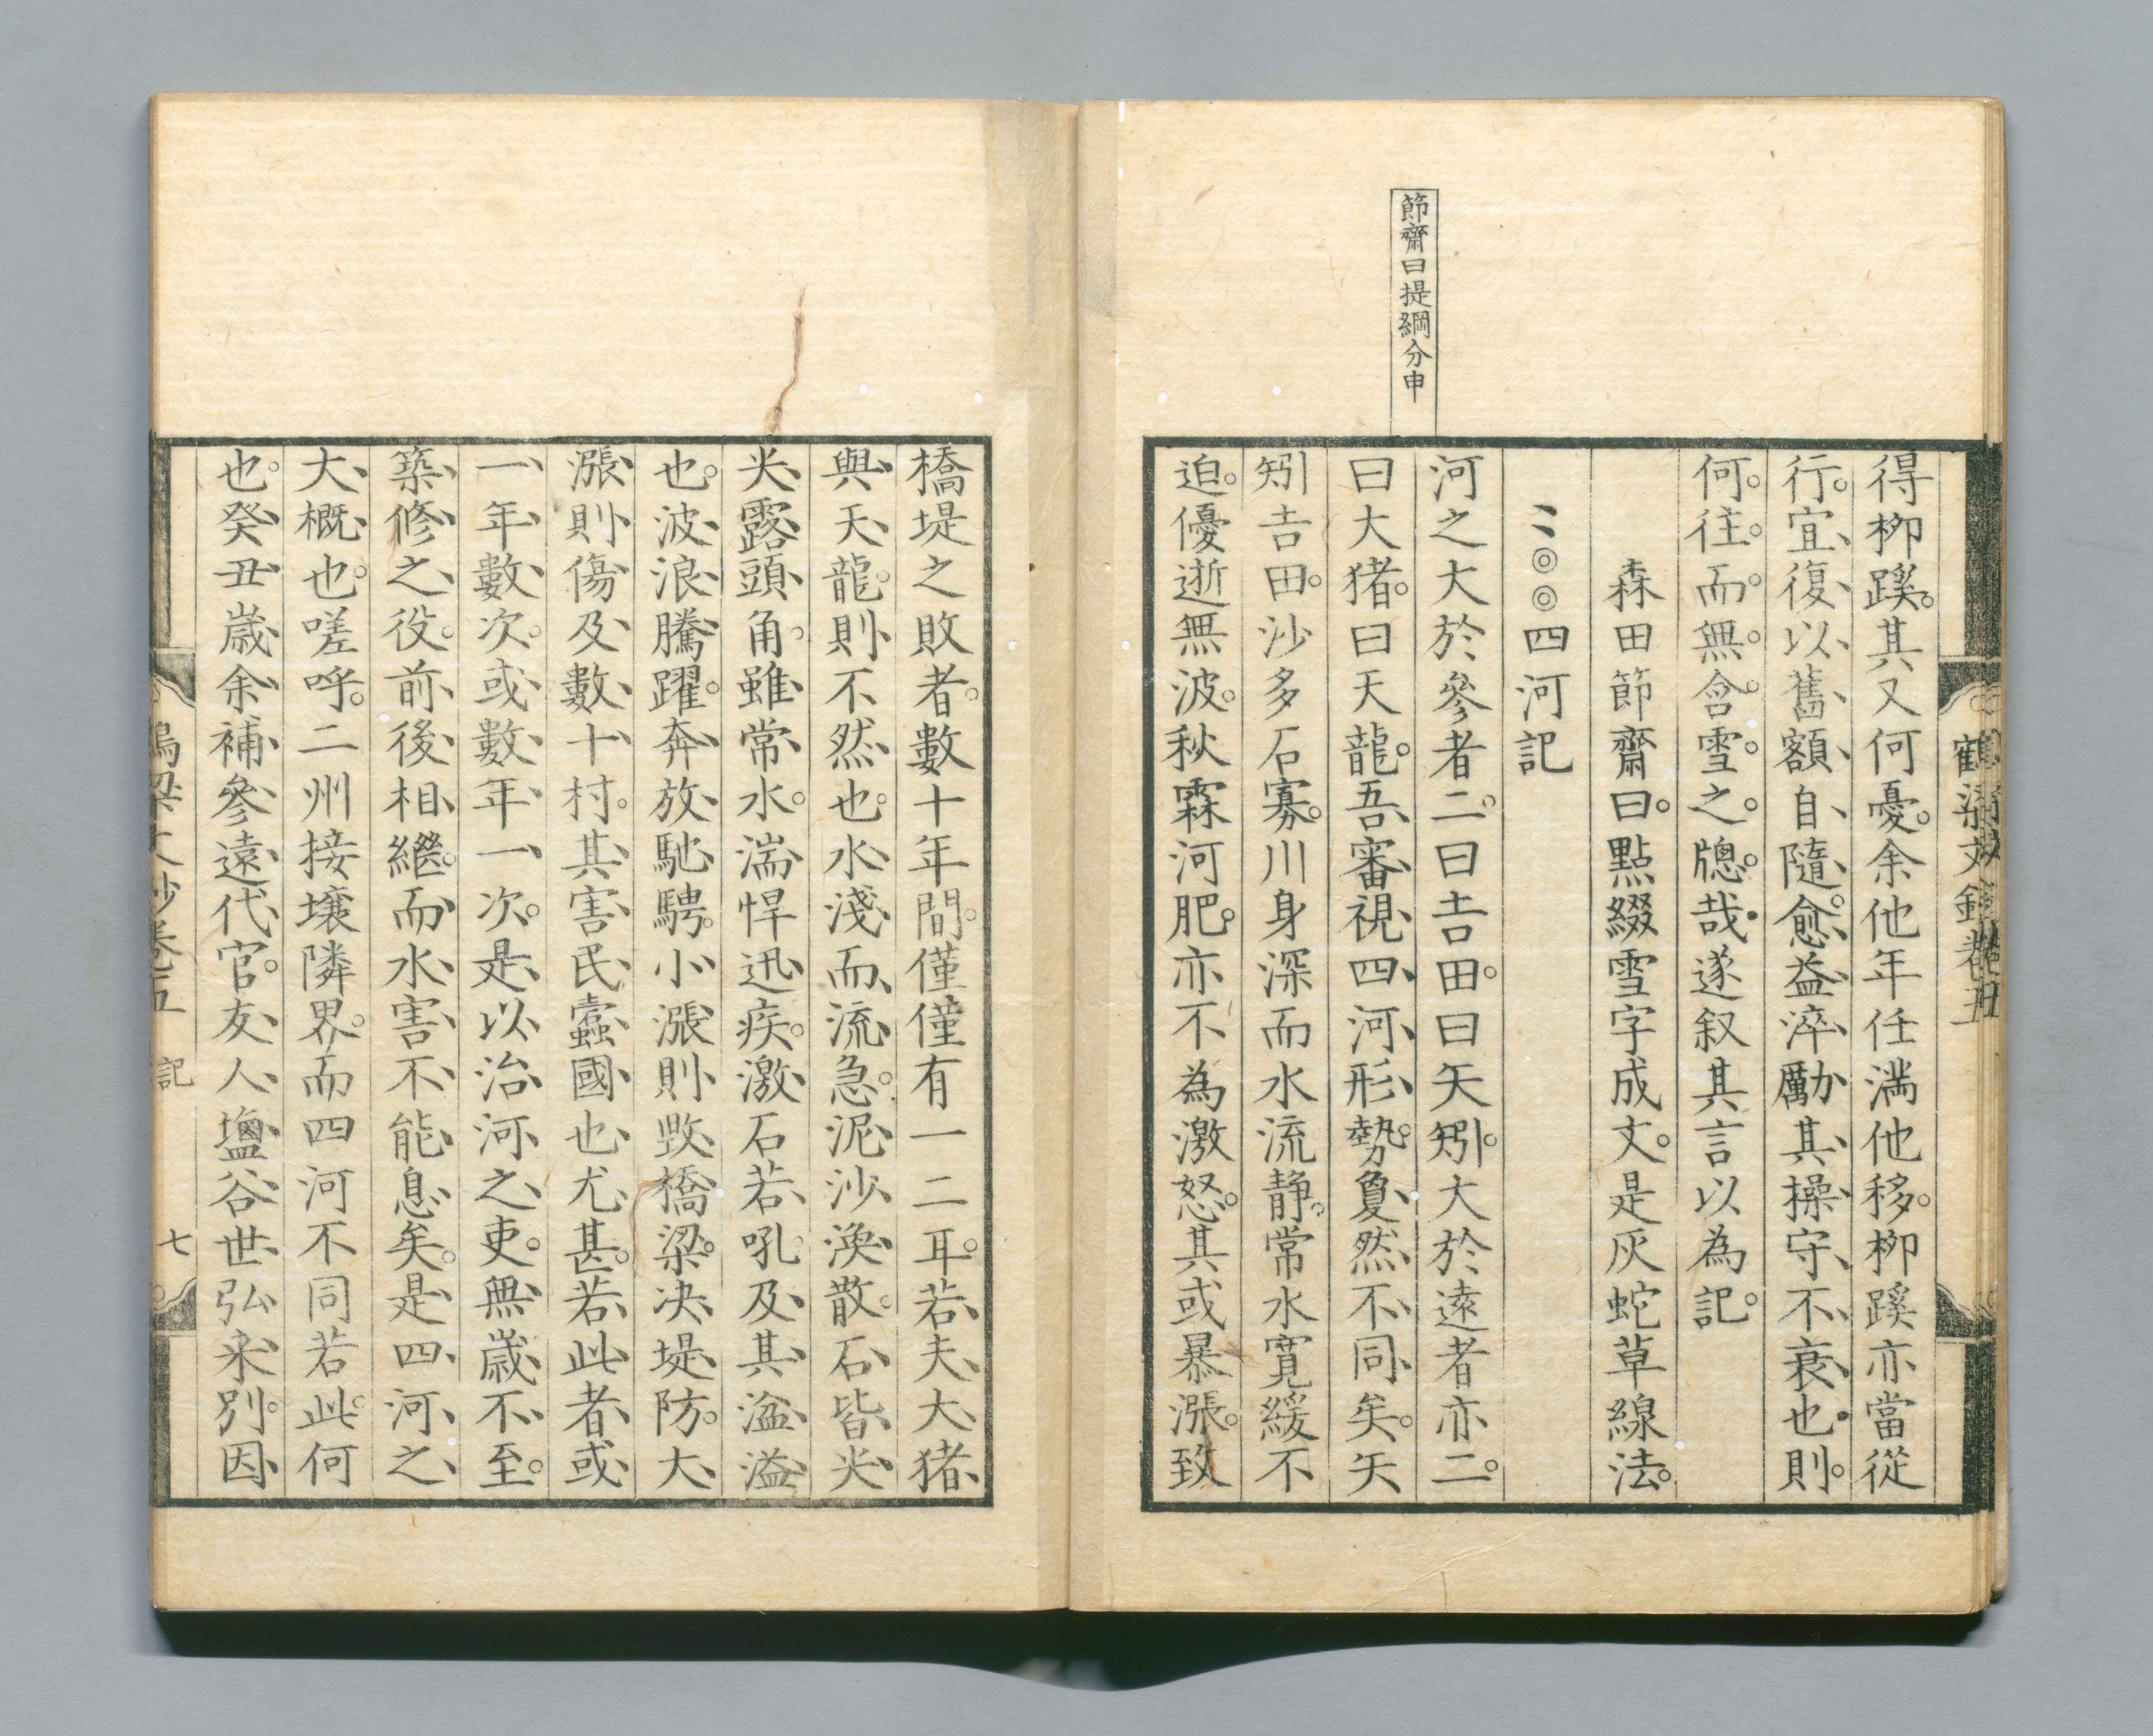 節齋曰提綱分申
得栁蹊。其又何憂。余他年任滿他移。栁蹊亦當從
行。宜、復、以、舊、額、自、隨。愈、益、淬、勵、其、操、守、不、衰、也、則。
何。往。而。無。含。雪。之。牕。哉。遂叙其言以為記。
森田節齋曰。點綴雪字成文。是灰蛇草線法。
〻◎◎四河記
河之大於參者二。曰吉田。曰矢矧。大於遠者亦二。
曰大猪。曰天龍。吾、審、視、四、河、形、勢。夐、然、不、同、矣。矢
矧吉田。沙多石寡。川身深而水流静。常水寛緩不
迫。優逝無波。秋霖河肥。亦不為激怒。其或暴漲。致
橋堤之敗者。數十年間。僅僅有一二耳。若、夫、大、猪、
與、天、龍。則不然也。水、淺、而、流、急。泥、沙、渙、散。石、皆、尖、
尖、露、頭、角。雖、常、水。湍悍迅疾。激、石若、吼。及、其、溢溢、
也。波、浪、騰、躍。奔、放、馳、騁。小、漲則、毀、橋梁。决、堤、防。大、
漲、則、傷、及、數、十、村。其、害、民、蠹、國、也、尤、甚。若、此、者、或、
一、年、數、次。或、數、年、一、次。是、以、治、河、之、吏。無、歲、不、至。
築、修、之、役。前、後、相、繼。而、水、害、不、能、息、矣。是、四、河、之、
大、概、也。嗟呼。二州接壤隣界。而四河不同若此。何
也。癸、丑、歲、余、補、參、遠、代、官。友、人、鹽、谷、世、弘、来、別。因、
鶴梁文鈔卷五
鶴梁文鈔卷五 記 七